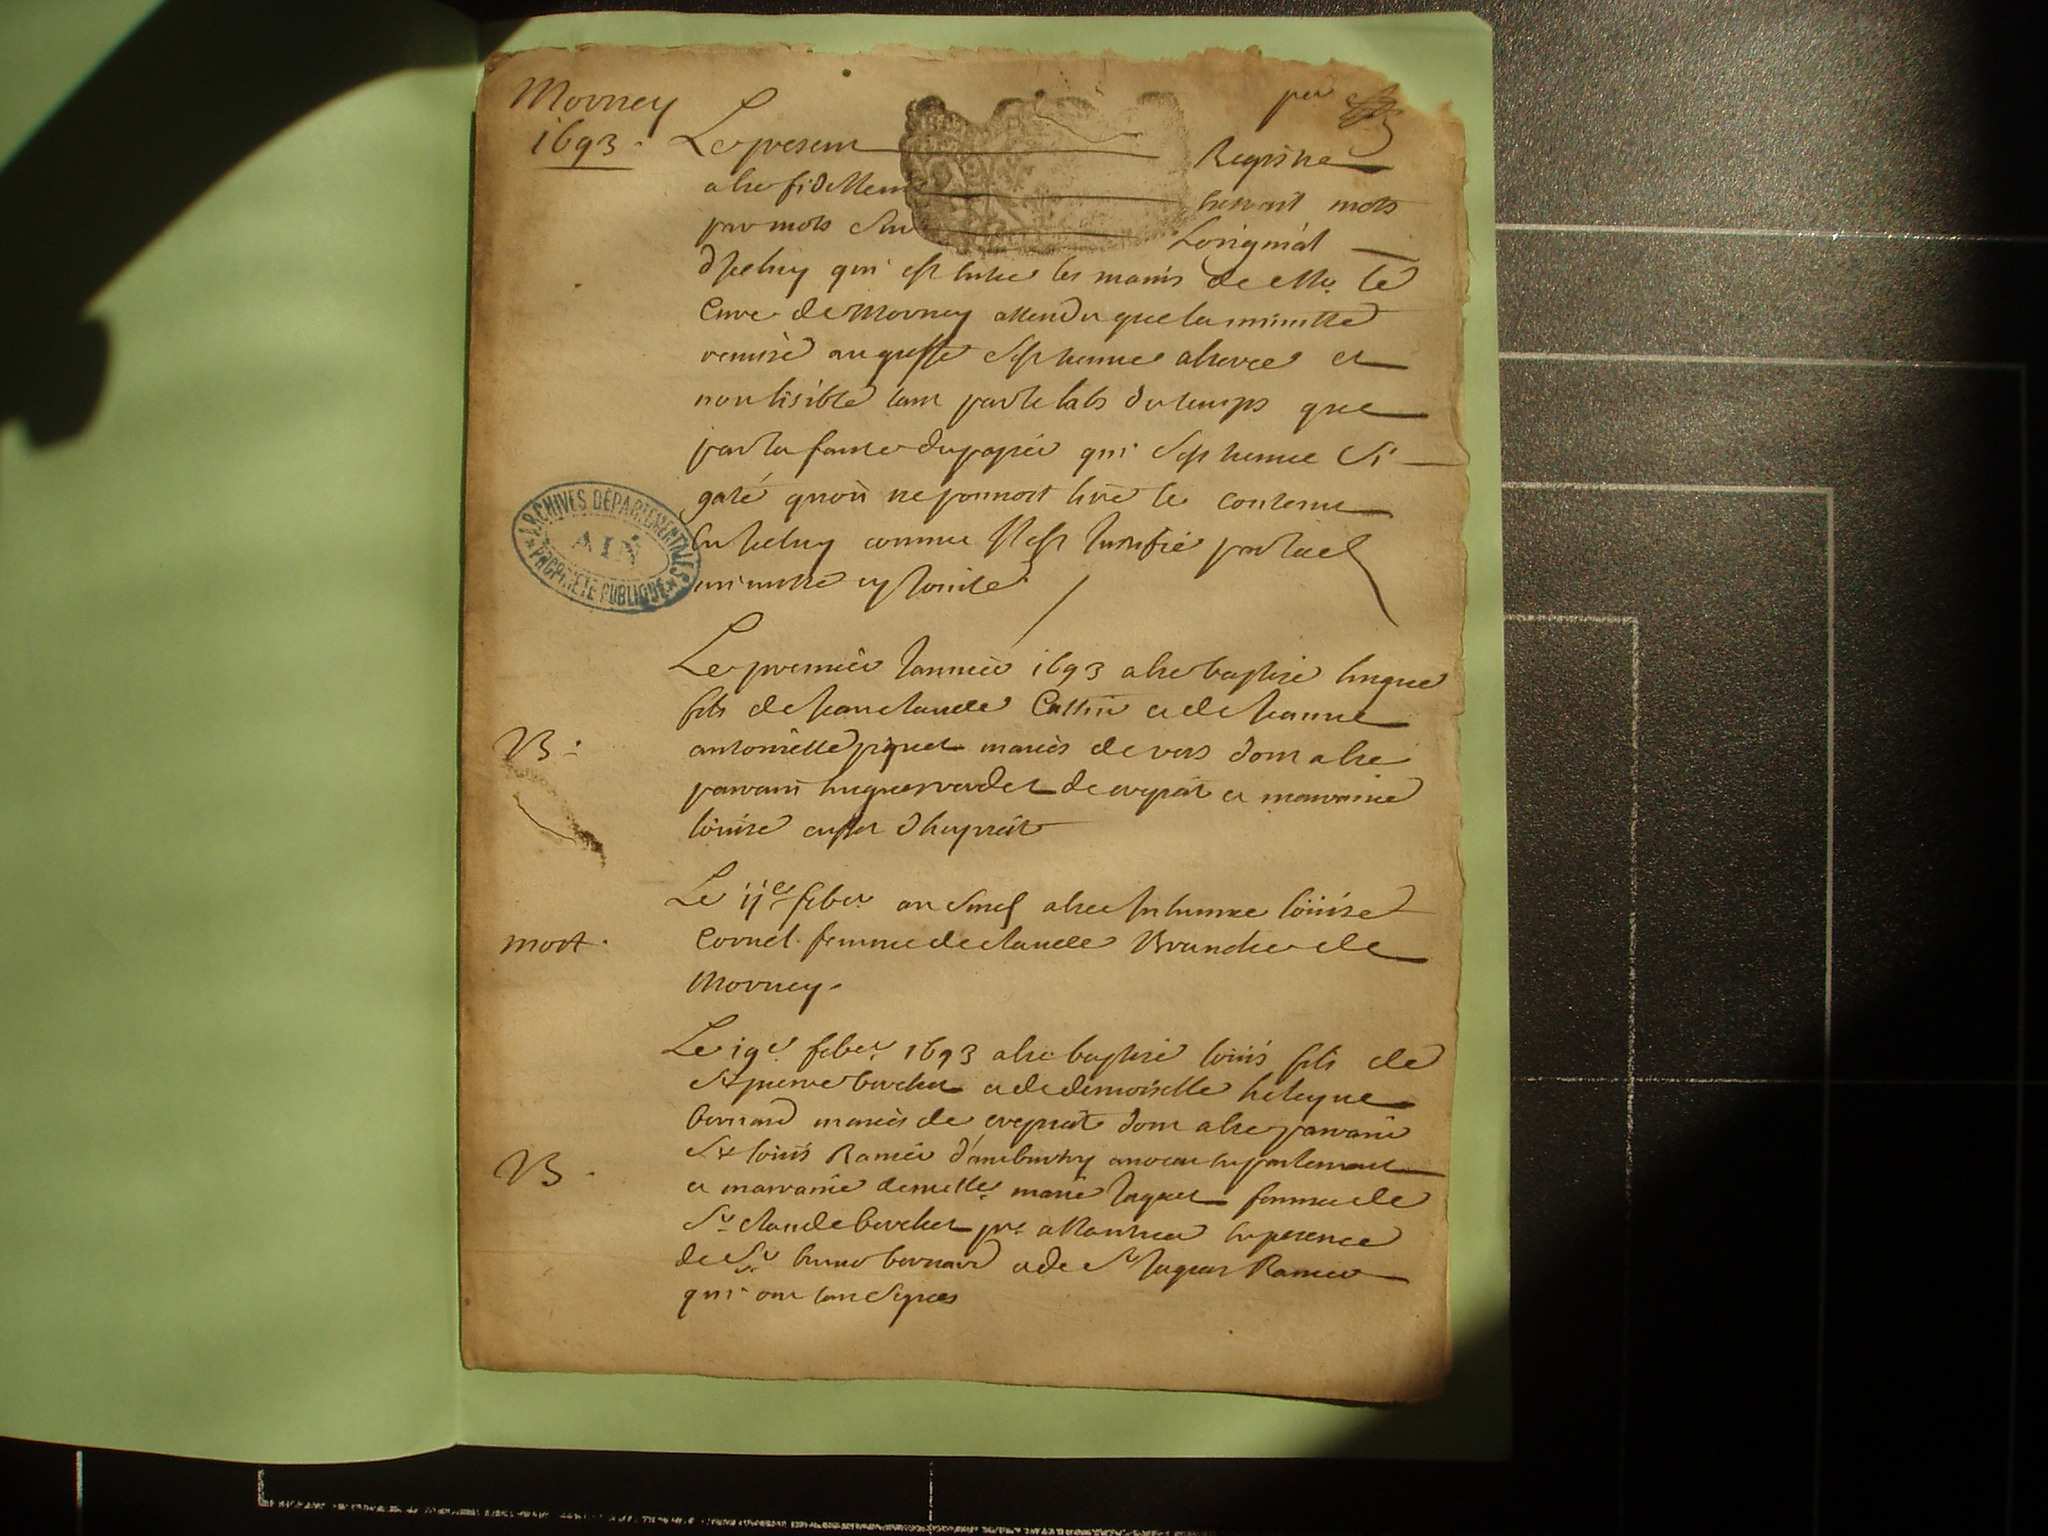 Mornay
1693.
per
Le present Registre
a este fidellement transcrit mots
par mots sur Loriginal
d'Iceluy qui est entre les mains de Mr. le
Curé de Mornay attendu que la minutte
remise au greffe sest trouvee alteree et
non lisible tant par le labs du temps que
par la faute du papier qui sest trouvé si
gaté qu'on ne pouvoit lire le contenu
en Iceluy comme Il est Justifié par lad
minutte cy Jointe
ARCHIVES DÉPARTEMENTALES
AIN
PROPRIÉTÉ PUBLIQUE
Le premier Janvier 1693 a este baptisé hugue
fils de Jean claude et de Jeanne
B.
antoinette piquet mariés de vers dont a este
parrain hugue verdet de crepiat et marraine
louise d'heyriat
Le ije feber. an susd a este Inhumee loüise
mort.
Cornet femme de claude Brunet de
Mornay.
Le 19e feber. 1693 a este baptisé loüis fils de
Sr pierre borchet et de demoiselle heleyne
bernard mariés de crepiat dont a este parrain
B.
Sr loüis Ramier d'ambutry avocat en parlement
et marraine demelle. marie Juquet femme de
Sr claude borchet en presence
de Sr. bernard et de Sr Ramier
qui ont tous signes